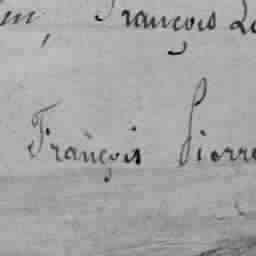 François
François Pierre